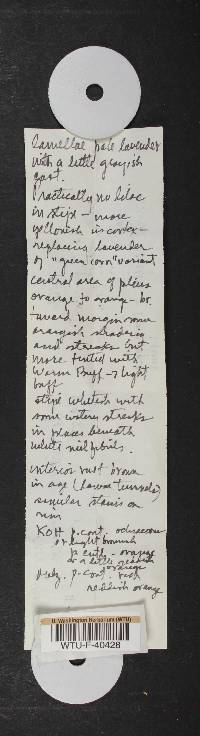 Lamellae pale lavender
with a little grayish
cast.
Practically no lilac
in stipe - more
yellowish in cortex -
replacing lavender
of "green corn" variant
central area of pileus
orange to orange-br.
toward margin some
orangish shading
and streaks but
more tinted with
Warm Buff -> light
buff
stipe whitish with
some watery streaks
in places beneath
white
interior rust brown
in age (larva tunnels)
similar stains on
rim
KOH p. cont. ochraceous
or light brownish
p. cutl. - orange
or a little
orange
p. cont.
reddish orange
U. Washington Herbarium (WTU)
WTU-F-40428